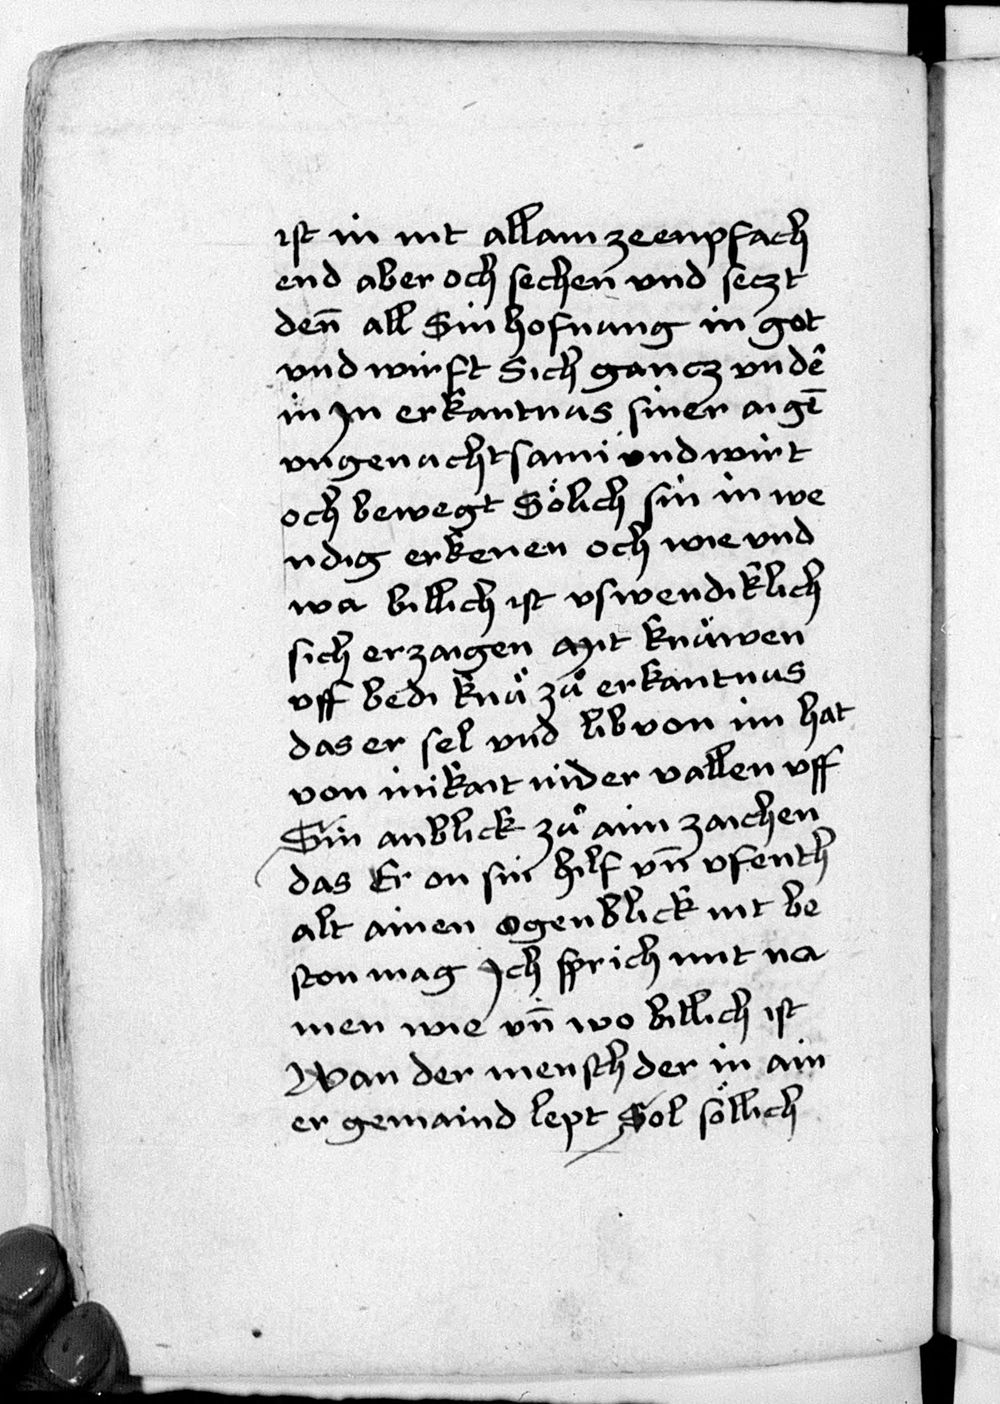 ist in nit allain ze enpfach
end aber och sechen vnd seczt
den̄ all Sin hofnung in got
vnd wirft Sich gancz vndē
in Jn erkantnus siner aigē
vngenuchtsami vnd wirt
och bewegt Sölich sin in we
ndig erkenen och wie vnd
wa billich ist vswendiklich
sich erzaigen Mit knüwen
vff bedi knü zů erkantnus
das er sel vnd lib von im hat
von inikait nider vallen vff
Sin anblick zů aim zaichen
das Er on sin hilf vn̄ vfenth
alt ainen ogenblick nit be
ston mag Jch sprich mit na
men wie vn̄ wo billich ist
Wan der mensch der in ain
er gemaind lept Sol söllich